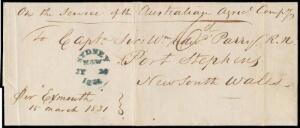 On the Service of the Australian Agricl Compy
To Captn Sir Wm Edwd Parry R.N.
Port Stephens
New South Wales
SYDNEY
NSW
JY
Per Exmouth
15 march 1831